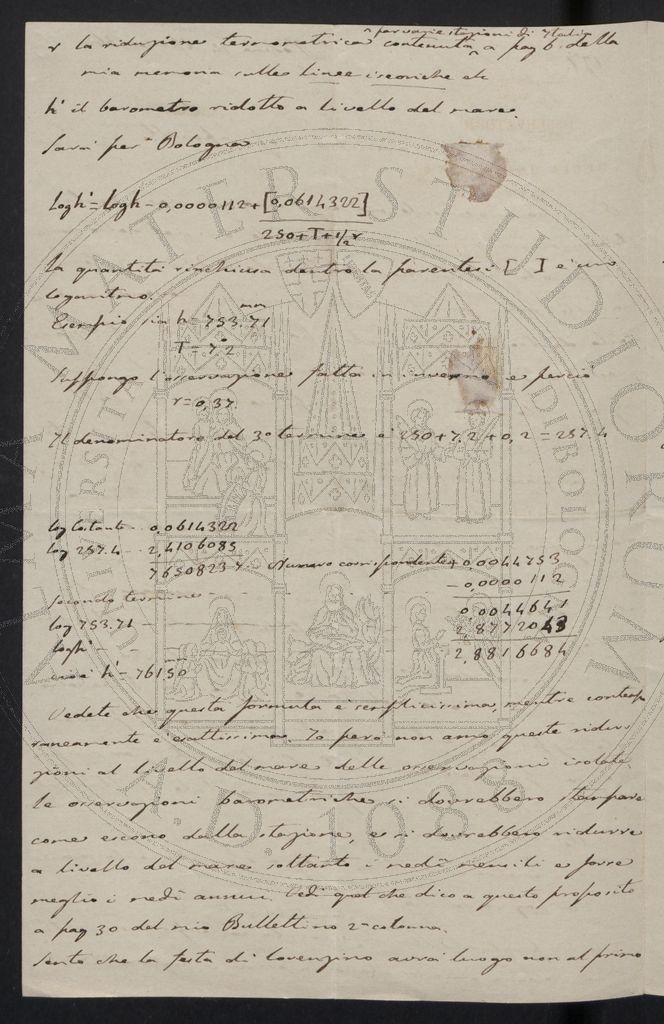 ^ per varie stazioni di Italia
r la riduzione termometrica contenuta ^ a pag 6. della
mia memoria sulle linee isoniche etc
h' il barometro ridotto a livello del mare.
Sarà per Bologna
log h' = log h - 0,0000112 + [0,0614322]
250+T+1/2 r
la quantità rinchiusa dentro la parentesi [ ] è un
logaritmo.
Esempio sia h = 753.71 mm
T = 7°.2
Suppongo l'osservazione fatta in inverno e perciò
r = 0,37.
Il denominatore del 3° termine è 250 + 7,2 + 0,2 = 257.4
log Costante - - 0,0614322
log 257.4 - - 2,4106085
7.6508237 - Numero corrispondente + 0,0044753
- 0,0000112
Secondo termine - 0,0044641
log 753.71 - 2,8772043
log h' - - 2,8816684
cioè h' = 761.50
Vedete che questa formula è semplicissima, mentre contempo
raneamente è esattissima. Io però non amo queste ridu-
zioni al livello del mare delle osservazioni isolate.
le osservazioni barometriche si dovrebbero stampare
come escono dalla stazione, e si dovrebbero ridurre
a livello del mare soltanto i medî mensili e forse
meglio i medî annui. Vedi quel che dico a questo proposito
a pag 30 del mio Bullettino 2ª colonna.
Sento che la festa di Lorenzino avrà luogo non al primo
ALMA MATER STUDIORUM
UNIVERSITA DI BOLOGNA
A.D. 1088